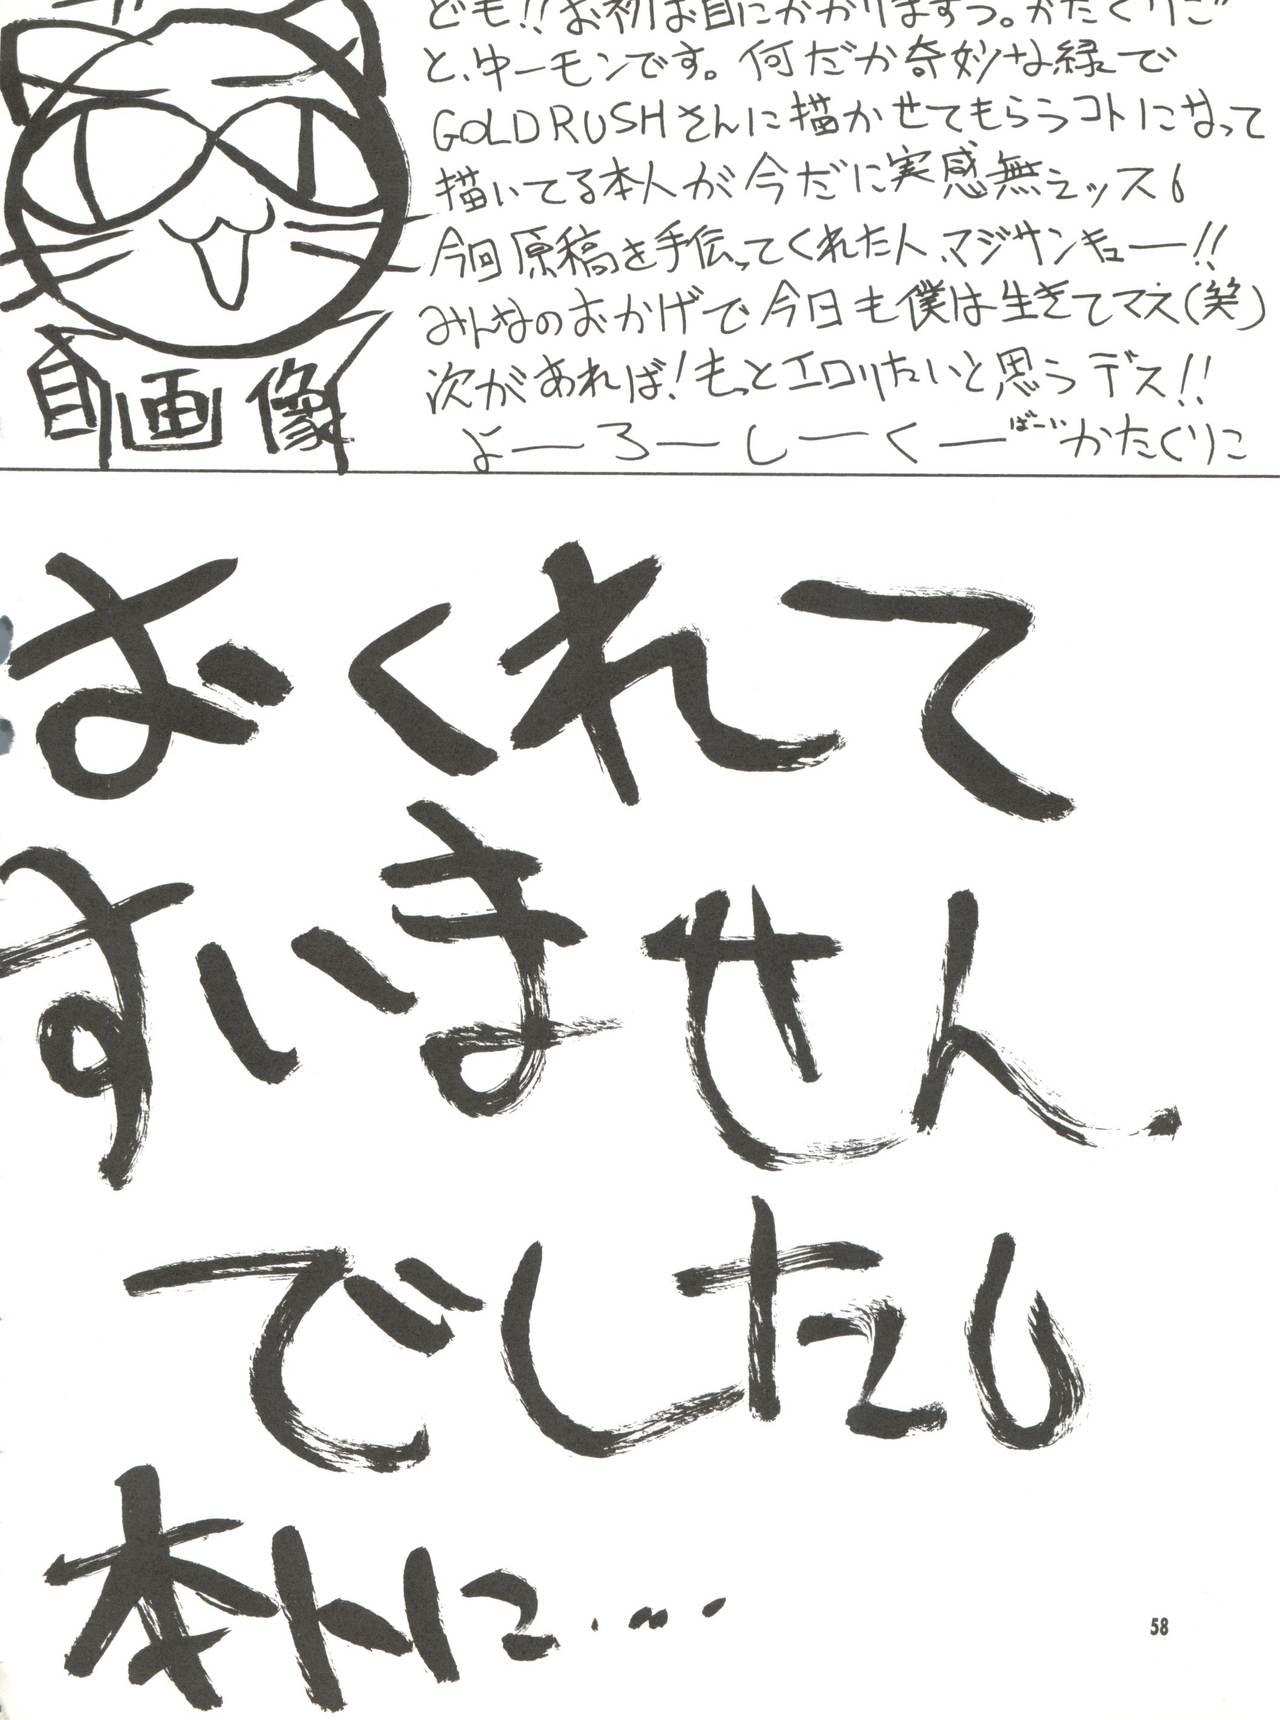 ども!!お初お目にかかりますっ。かたくりご
と、ゆーモンです。何だか奇妙な縁で
GOLD RUSHさんに描かせてもらうコトになって
描いてる本人が今だに実感無えッス。
今回原稿を手伝ってくれた人、マジサンキュー!!
みんなのおかげで今日も僕は生きてマス(笑)
次があれば!もっとエロりたいと思うデス!!
よーろーしーくーばーいかたくりこ
自画像
おくれて
すいません
でした。
本トに・・・・
58